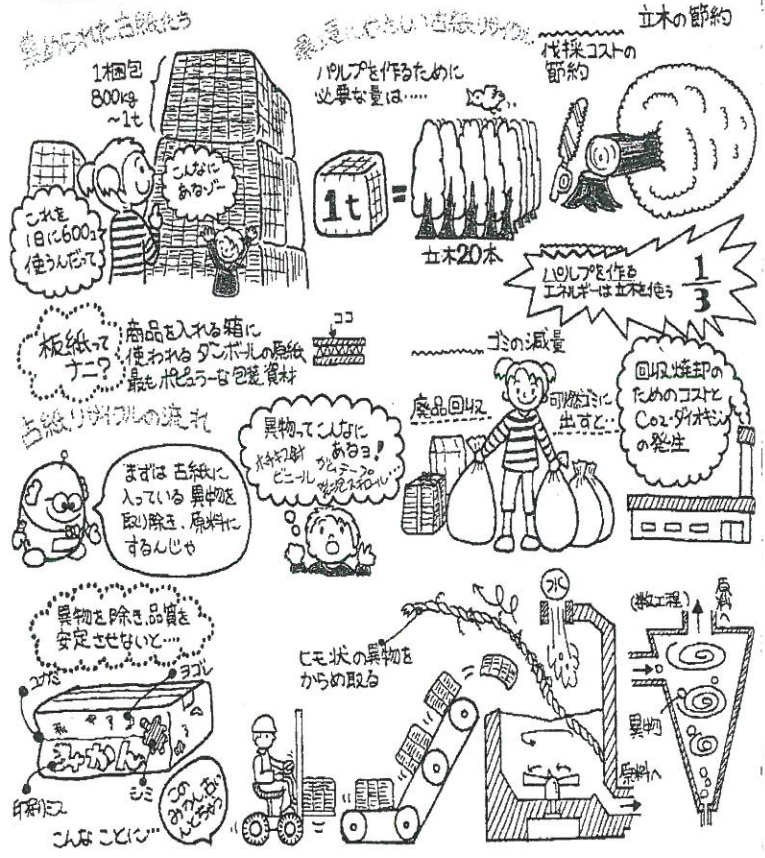 集められた古紙たち
1梱包
800kg
～1t
こんなに
あるゾー
これを
1日に600コ
使うんだって
環境にやさしい古紙リサイクル
パルプを作るために
必要な量は……
1t
=
立木20本
立木の節約
伐採コストの
節約
パルプを作る
エネルギーは立木を使う
1
3
板紙って
ナニ?
商品を入れる箱に
使われるダンボールの原紙
最もポピュラーな包装資材
ココ
ゴミの減量
廃品回収
可燃ゴミに
出すと…
回収焼却の
ためのコストと
CO2・ダイオキシン
の発生
古紙リサイクルの流れ
まずは古紙に
入っている異物を
取り除き、原料に
するんじゃ
異物ってこんなに
あるヨ!
ホチキス針
ビニール
ガムテープ
発泡スチロール…
異物を除き品質を
安定させないと…
ユガミ
ヨゴレ
みかん
印刷ミス
シミ
この
みかん古い
んとちゃう
こんなことに…
ヒモ状の異物を
からめ取る
水
原料へ
(数工程)
原料へ
異物